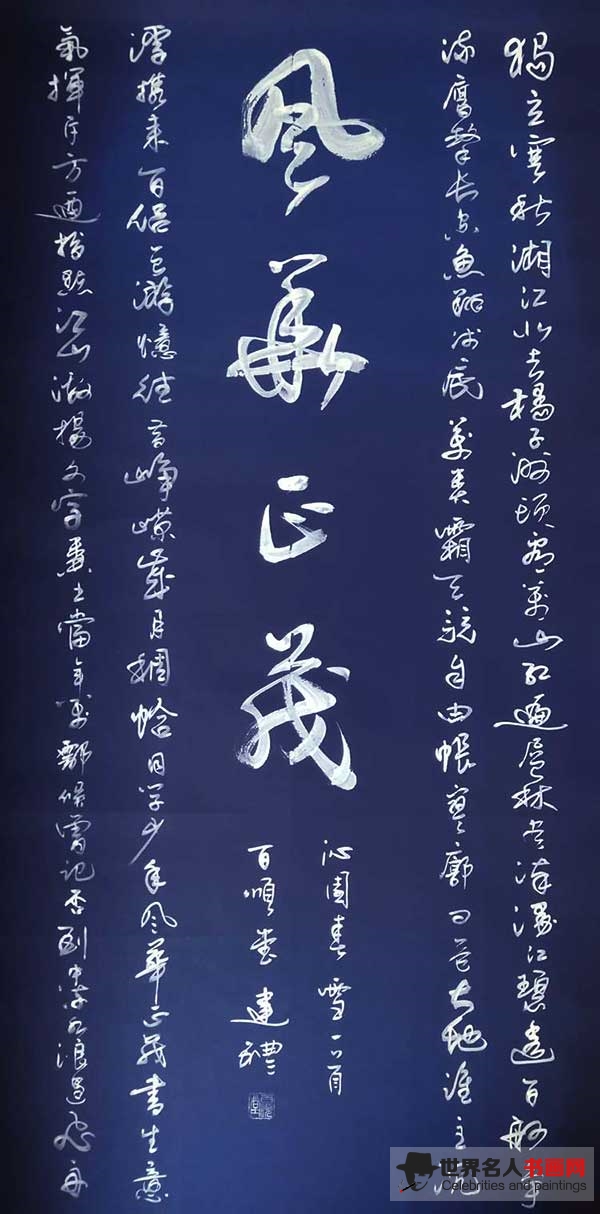 獨立寒秋湘江北去橘子洲頭看萬山红遍層林尽染漫江碧透百舸争
流鷹擊長空魚翔浅底萬类霜天競自由悵寥廓问大地谁主沉
风華正茂
沁園春雪一首
百順堂 建禮
浮攜来百侣曾游憶往昔崢嶸歲月稠恰同学少年风華正茂書生意
氣揮斥方遒指點江山激揚文字糞土當年万侯曾记否到水浪遏飞舟
世界名人书画网
Celebrities and paintings